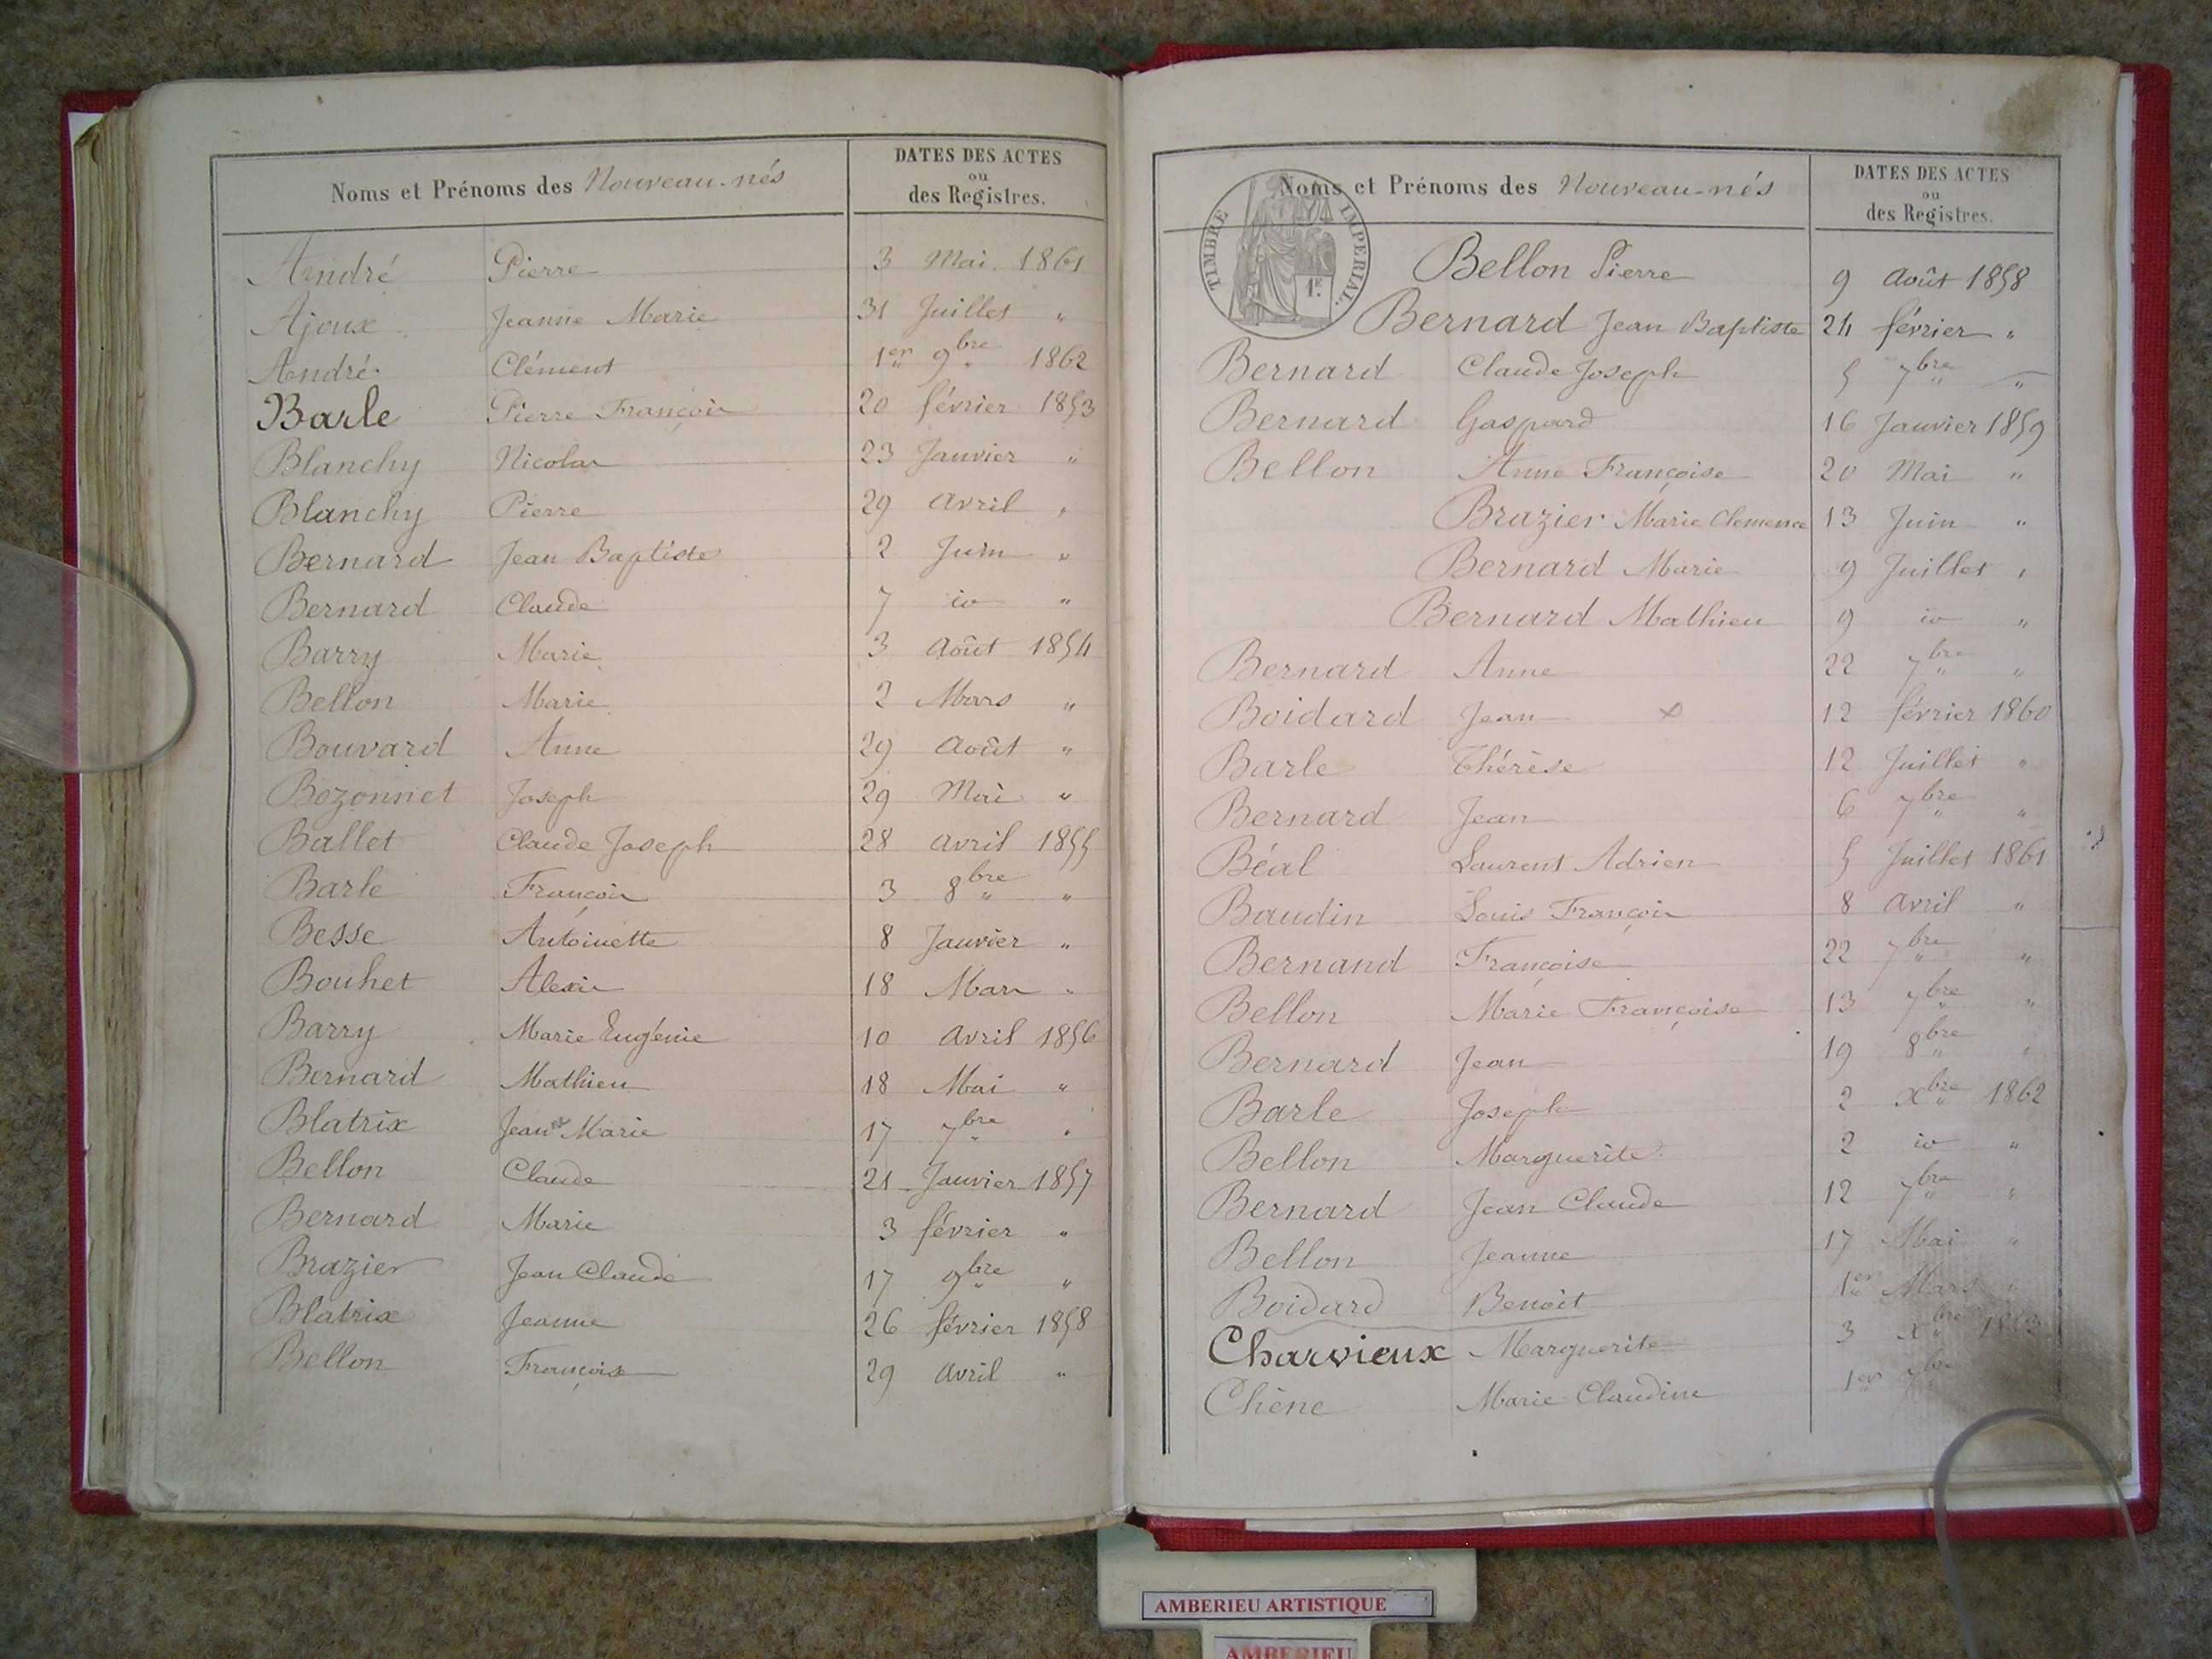 Noms et Prénoms des Nouveau-nés
DATES DES ACTES
ou
des Registres.
André Pierre 3 Mai 1861
Ajoux Jeanne Marie 31 Juillet "
André Clément 1er 9bre 1862
Barle Pierre François 20 février 1853
Blanchy Nicolas 23 Janvier "
Blanchy Pierre 29 avril "
Bernard Jean Baptiste 2 Juin "
Bernard Claude 7 io "
Barry Marie 3 Août 1854
Bellon Marie 2 Mars "
Bouvard Anne 29 Août "
Bozonnet Joseph 29 Mai "
Ballet Claude Joseph 28 avril 1855
Barle François 3 8bre "
Besse Antoinette 8 Janvier "
Bouhet Alexis 18 Mars "
Barry Marie Eugénie 10 avril 1856
Bernard Mathieu 18 Mai "
Blatrix Jeanne Marie 17 7bre "
Bellon Claude 21 Janvier 1857
Bernard Marie 3 février "
Brazier Jean Claude 17 9bre "
Blatrix Jeanne 26 février 1858
Bellon François 29 avril "
Noms et Prénoms des Nouveau-nés
DATES DES ACTES
ou
des Registres.
TIMBRE IMPERIAL.
1F.
Bellon Pierre 9 août 1858
Bernard Jean Baptiste 24 février "
Bernard Claude Joseph 5 7bre "
Bernard Gaspard 16 Janvier 1859
Bellon Anne Françoise 20 Mai "
Brazier Marie Clemence 13 Juin "
Bernard Marie 9 Juillet "
Bernard Mathieu 9 io "
Bernard Anne 22 7bre "
Boidard Jean x 12 février 1860
Barle Thérèse 12 Juillet "
Bernard Jean 6 7bre "
Béal Laurent Adrien 5 Juillet 1861
Baudin Louis François 8 avril "
Bernand Françoise 22 7bre "
Bellon Marie Françoise 13 7bre "
Bernard Jean 19 8bre "
Barle Joseph 2 Xbre 1862
Bellon Marguerite 2 io "
Bernard Jean Claude 12 7bre "
Bellon Jeanne 17 Mai "
Boidard Benoit 1er Mars "
Charvieux Marguerite 3 Xbre 1853
Chêne Marie Claudine 1er 7bre
AMBERIEU ARTISTIQUE
AMBERIEU